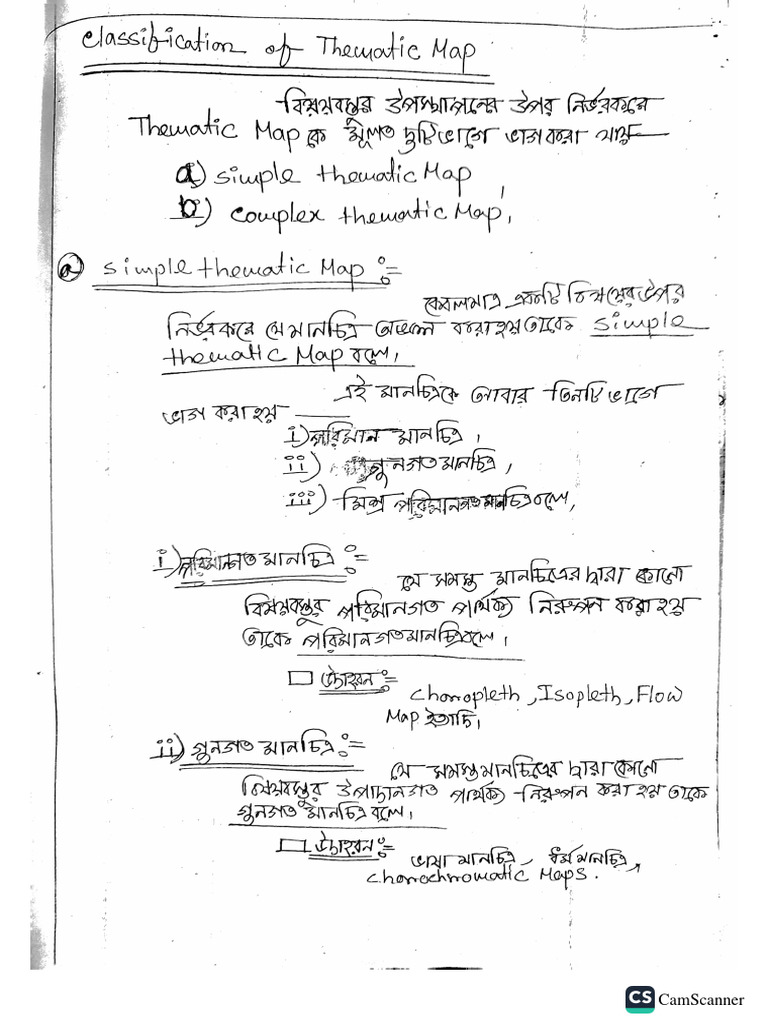 Classification of Thematic Map
বিষয়বস্তুর উপস্থাপনের উপর নির্ভরকরে
Thematic Map কে মূলত দুটিভাগে ভাগ করা যায়—
a) simple thematic Map
b) complex thematic Map,
a) simple thematic Map :=
কেবলমাত্র একটি বিষয়ের উপর
নির্ভরকরে যে মানচিত্র অঙ্কন করাহয় তাকে simple
thematic Map বলে,
এই মানচিত্রকে আবার তিনটি ভাগে
ভাগ করা হয় —
i) পরিমান মানচিত্র,
ii) গুনগত মানচিত্র,
iii) মিশ্র পরিমানগত মানচিত্র বলে,
i) পরিমানগত মানচিত্র :=
যে সমস্ত মানচিত্রের দ্বারা কোনো
বিষয়বস্তুর পরিমানগত পার্থক্য নিরুপন করা হয়
তাকে পরিমানগত মানচিত্র বলে,
উদাহরন :=
Choropleth, Isopleth, Flow
Map ইত্যাদি,
ii) গুনগত মানচিত্র :=
যে সমস্ত মানচিত্রের দ্বারা কোনো
বিষয়বস্তুর উপাদানগত পার্থক্য নিরুপন করা হয় তাকে
গুনগত মানচিত্র বলে,
উদাহরন :=
ভাষা মানচিত্র, ধর্ম মানচিত্র,
Chorochromatic Maps.
CS CamScanner